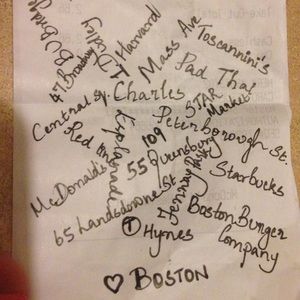 BU Bridge
47 Broadway
1 Dudley
1 Harvard
Mass Ave
Toscannini's
Pad Thai
Central Sq.
Charles
STAR
Market
Red Line
Esplanade
109
Peterborough St.
McDonald's
55 Queensbury
Starbucks
65 Landsdowne St
Fenway Park
Boston Burger
Company
T
Hynes
♡ BOSTON